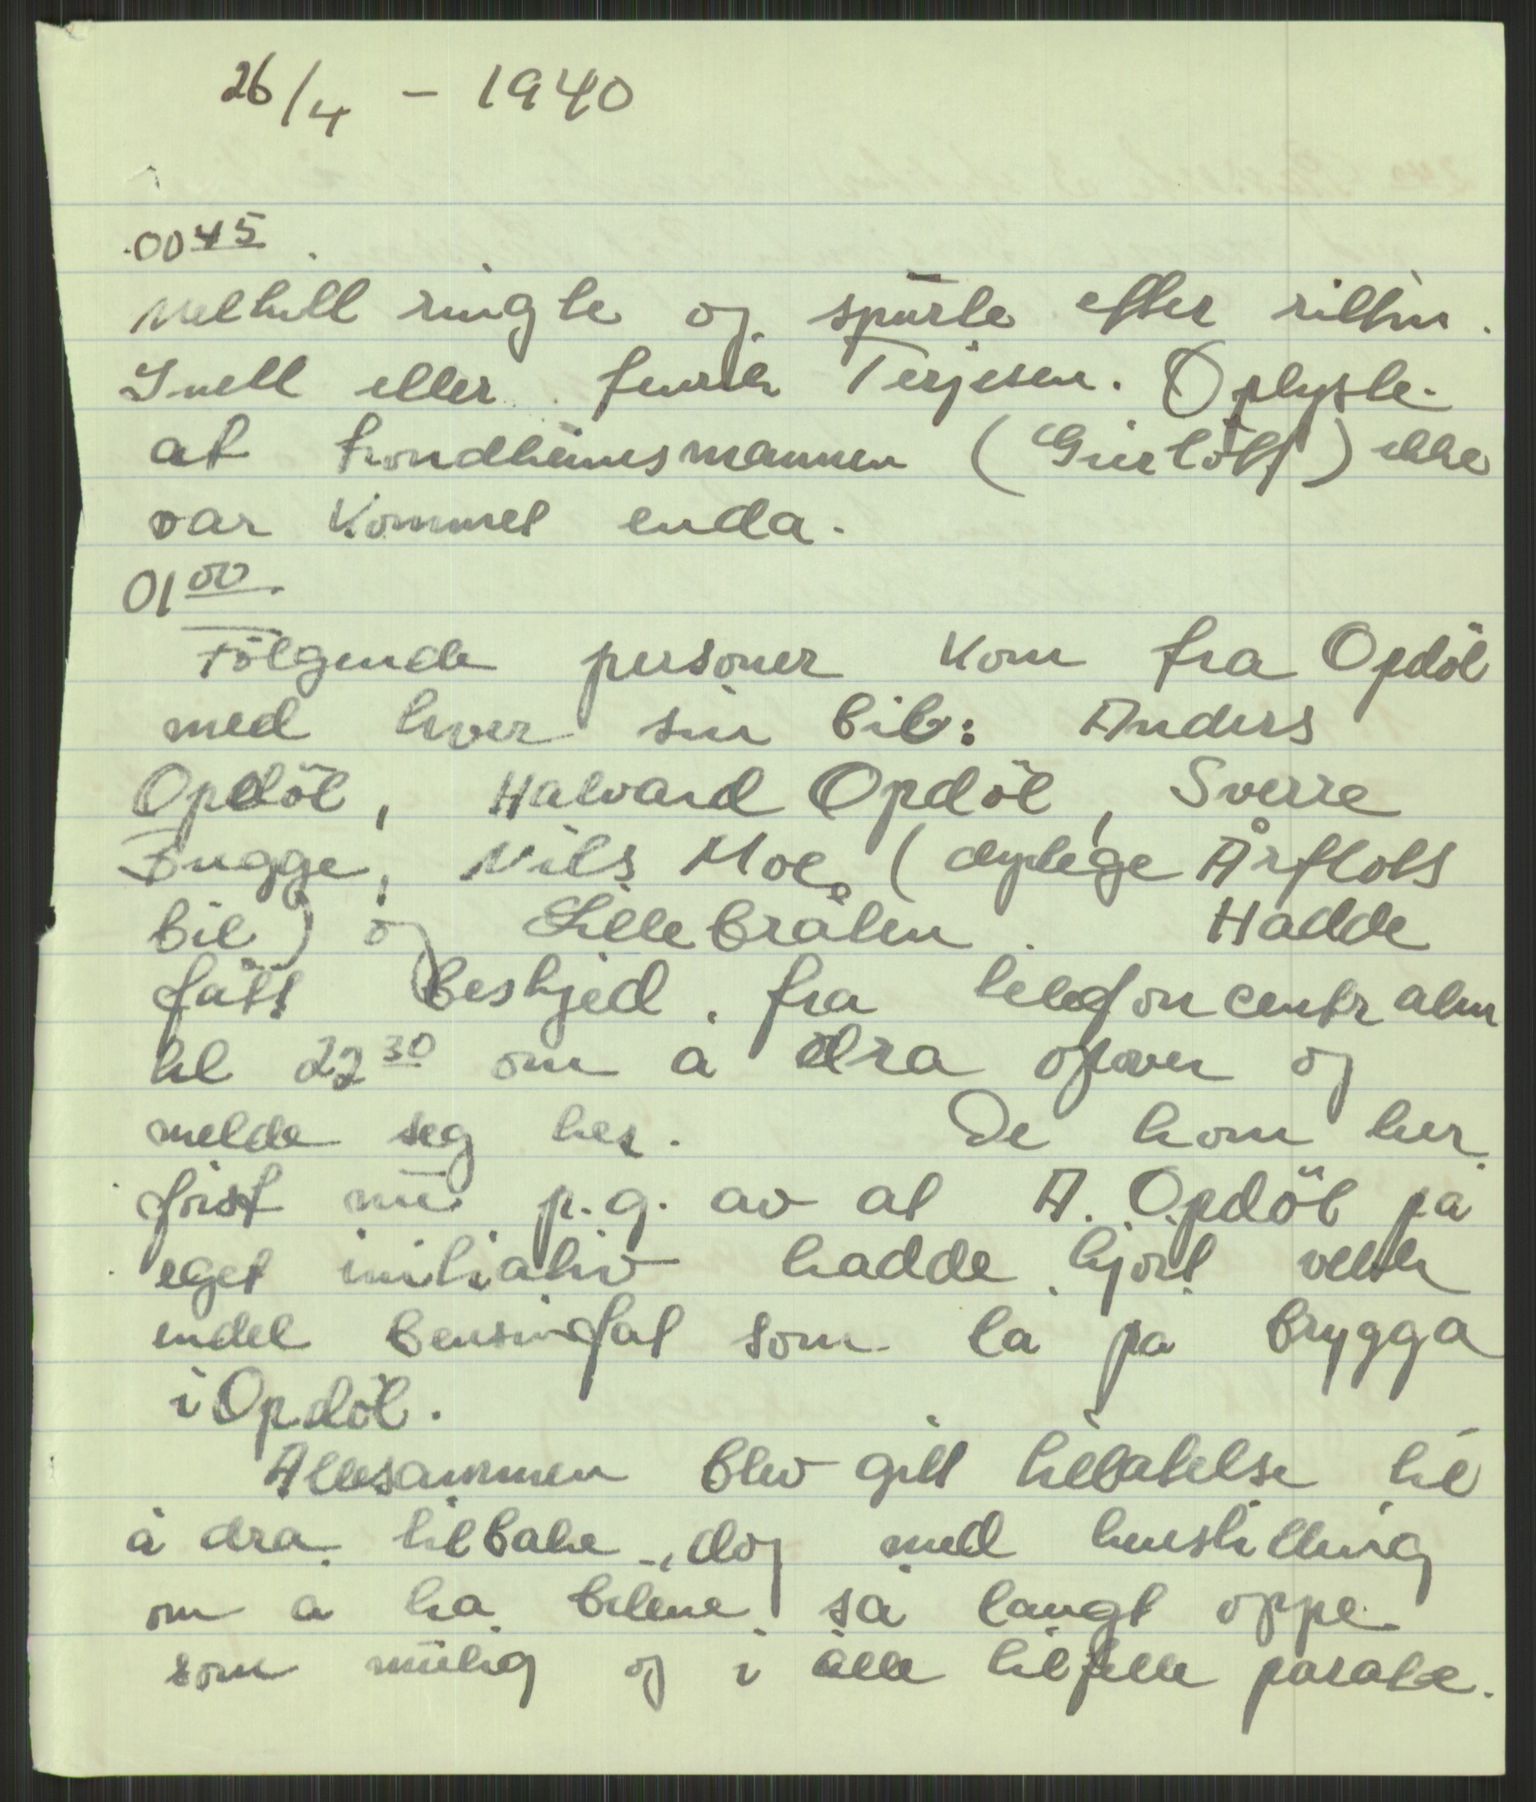 26/4 - 1940
0045
ringte og spurte efter rittm.
Snell eller fenrik Terjesen. Oplyste
at trondheimsmannen (Giertöff) ikke
var kommet enda.
0100
Fölgende personer kom fra Opdöl
med hver sin bil: Anders
Opdöl, Halvard Opdöl, Sverre
Bugge, Nils Moe, (dyrlege Årflots
bil) og Lillebråten. Hadde
fått beskjed fra telefoncentralen
kl 2230 om å dra opover og
melde seg her. De kom her
först nu p.g. av at A. Opdöl på
eget initiativ hadde kjört vekk
endel bensinfat som lå på brygga
i Opdöl.
Allesammen blev gitt tillatelse til
å dra tilbake, dog med henstilling
om å ha bilene så langt oppe
som mulig og i alle tilfelle parate.